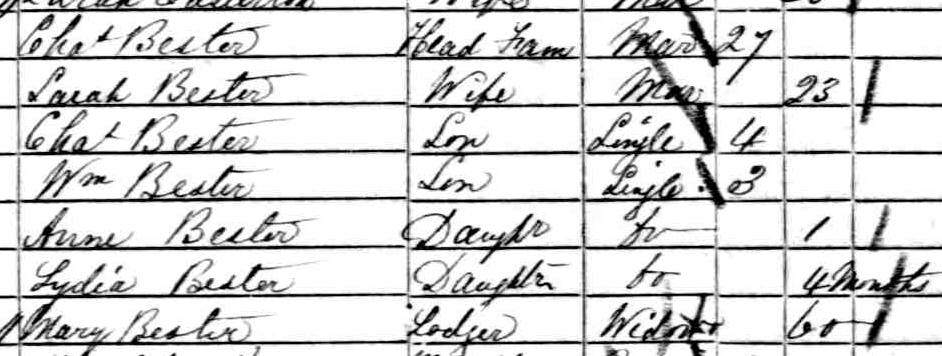 Chas Bester Head Fam Mar 27
Sarah Bester Wife Mar 23
Chas Bester Son Single 4
Wm Bester Son Single 3
Anne Bester Daughr Do 1
Lydia Bester Daughtr Do 4 Months
Mary Bester Lodger Widow 60